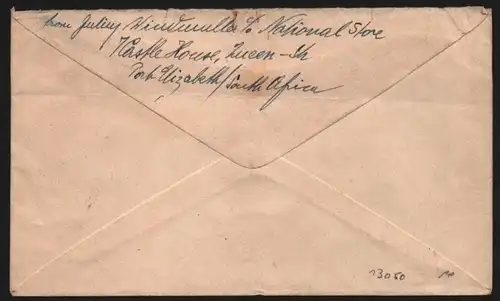 from Julius Windmuller c/o National Store
Castle House, Queen-Str
Port Elizabeth/South Africa
13050